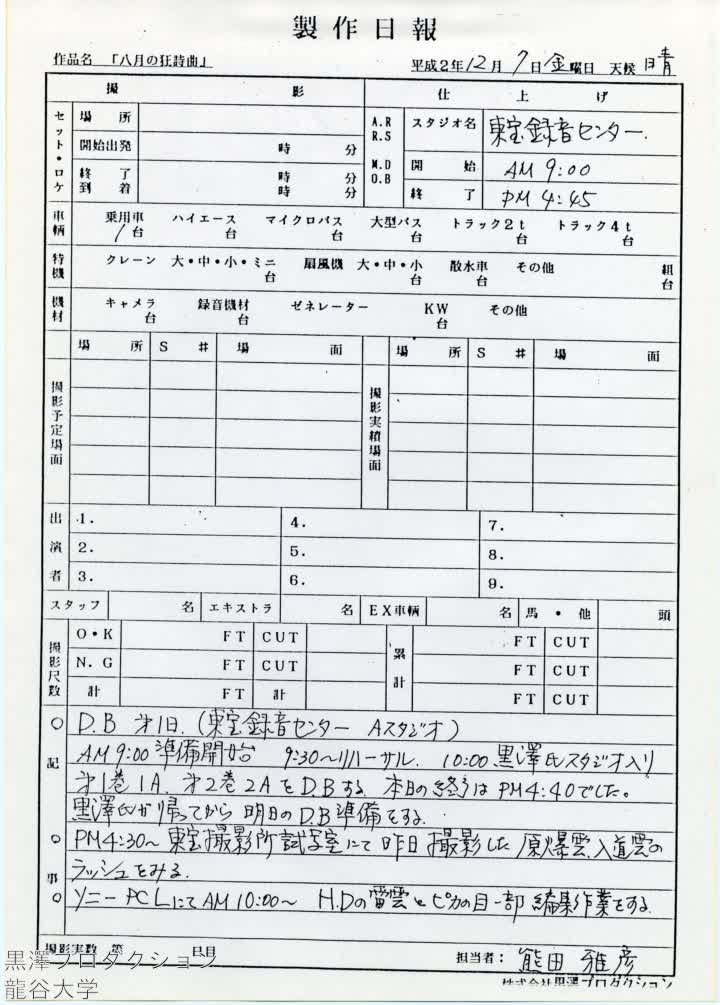 製作日報
作品名 「八月の狂詩曲」 平成2年12月7日金曜日 天候 晴
撮 影 仕 上 げ
セット・ロケ 場 所 A.R R.S M.D O.B スタジオ名 東宝録音センター.
開始出発 時 分 開 始 AM 9:00
終 了 時 分 終 了 PM 4:45
到 着 時 分
車輌 乗用車 1台 ハイエース 台 マイクロバス 台 大型バス 台 トラック2t 台 トラック4t 台
特機 クレーン 大・中・小・ミニ 台 扇風機 大・中・小 台 散水車 台 その他 組 台
機材 キャメラ 台 録音機材 台 ゼネレーター KW 台 その他
撮影予定場面 場 所 S # 場 面 撮影実績場面 場 所 S # 場 面
出演者 1. 4. 7.
2. 5. 8.
3. 6. 9.
スタッフ 名 エキストラ 名 EX車輌 名 馬・他 頭
撮影尺数 O・K FT CUT 累計 FT CUT
N.G FT CUT FT CUT
計 FT 計 FT CUT
記事
○ D.B 第1日.(東宝録音センター Aスタジオ)
AM 9:00 準備開始 9:30〜リハーサル. 10:00 黒澤氏スタジオ入り
第1巻 1A. 第2巻 2A を D.B する. 本日の終了は PM4:40でした。
黒澤氏が帰ってから 明日のD.B準備をする.
○ PM4:30〜 東宝撮影所試写室にて 昨日撮影した 原爆雲、入道雲の
ラッシュをみる.
○ ソニーPCLにてAM 10:00〜 H.Dの雷雲とピカの目一部編集作業をする.
撮影実数 第 日目 担当者: 熊田 雅彦
株式会社黒澤プロダクション
黒澤プロダクション
龍谷大学